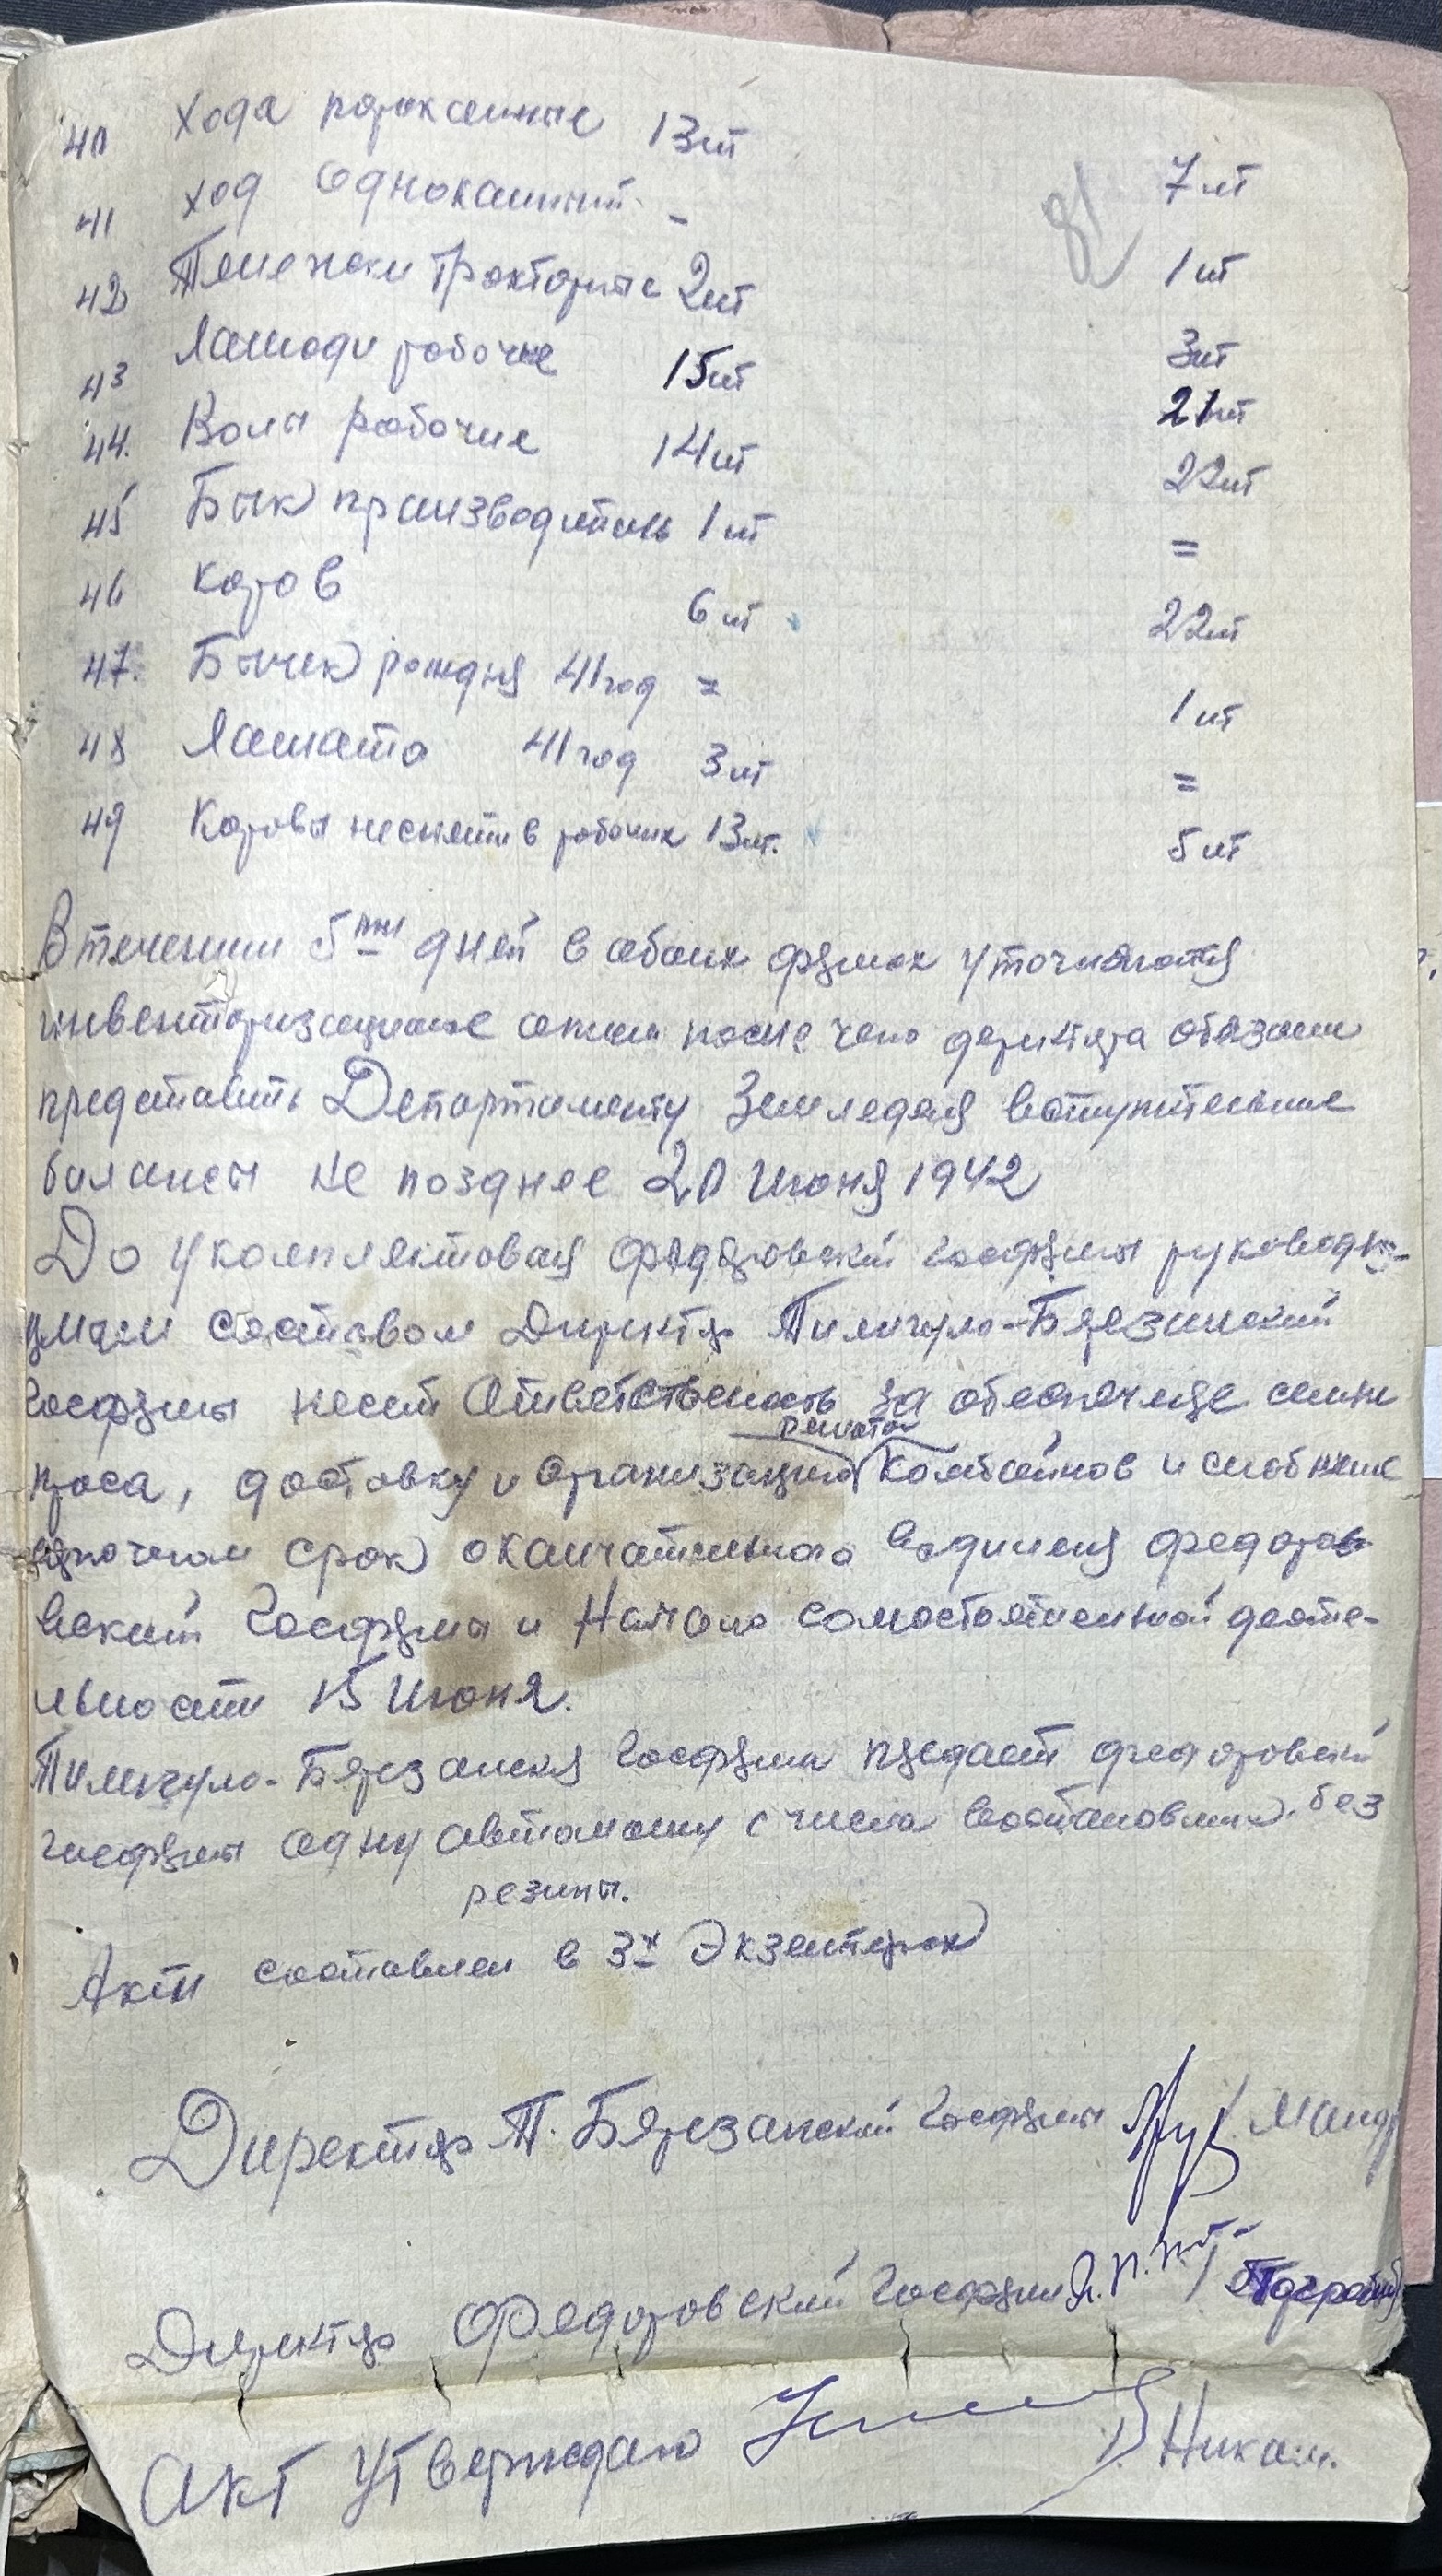 40 Хода пароконные 13шт 7шт
41 ход Одноконный - 1шт
42 Тележки тракторные 2шт 3шт
43 Лошоди рабочие 15шт 21шт
44. Волы рабочие 14шт 22шт
45 Бык производитель 1шт =
46 Коров 6шт 22шт
47. Бычек рожден 41год = 1шт
48 Лошата 41год 3шт =
49 Коровы несняты в рабочих 13шт. 5шт
81
В течении 5ти дней в обоих фермах уточняются
инвентаризационые описи после чего деректора обязаны
представить Департаменту Земледел вступительные
балансы не позднее 20 Июня 1942
До укомплектован Федоровской Госфермы руководя-
щим составом Директор Тилигуло-Березанской
Госфермы несет Ответственость за обеспечение семян
проса, доставку и Организацию ремонта Комбайнов и снобжение
срок окончательного федоро-
вской Госфермы и Начало самостоятельной деяте-
льности 15 Июня.
Тилигуло-Березанская Госферма передает федоровской
госфермы одну автомашину с числа востановлен. без
резины.
Акты составлен в 3х Экземплярах
Директор Т. Березанской Госфермы
Директор Федоровской Госфермы
Акт Утверждаю